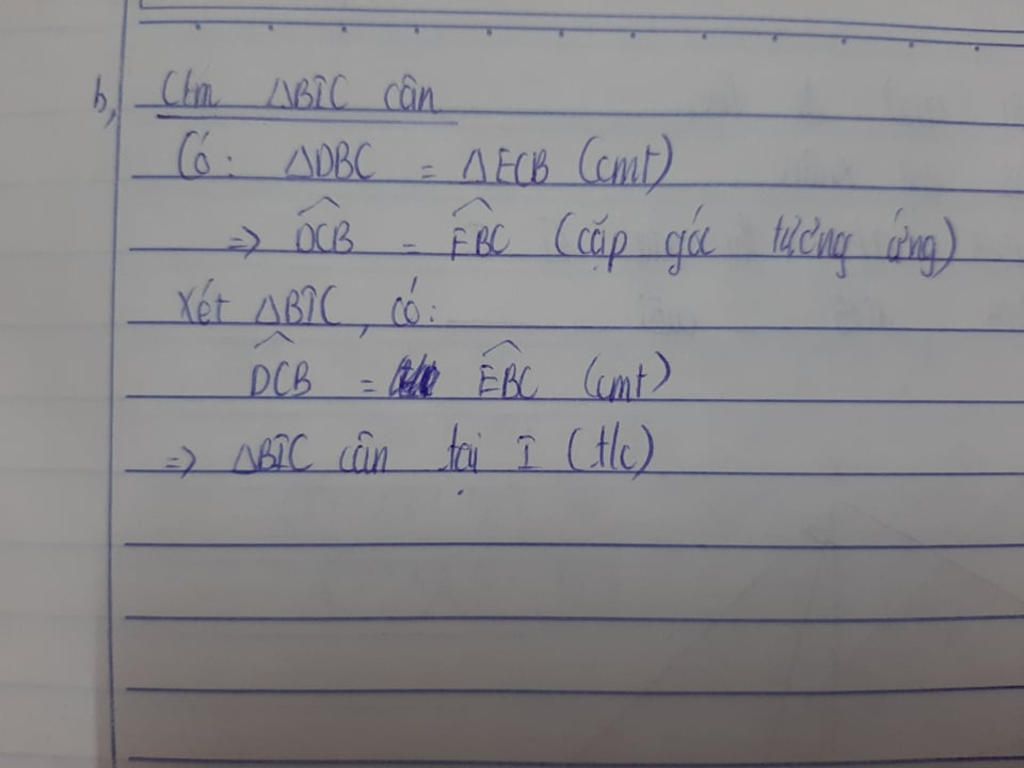 b, Ctm ΔBIC cân
Có: ΔDBC = ΔECB (cmt)
=> \widehat{DCB} = \widehat{EBC} (cặp góc tương ứng)
Xét ΔBIC, có:
\widehat{DCB} = \widehat{EBC} (cmt)
=> ΔBIC cân tại I (t/c)